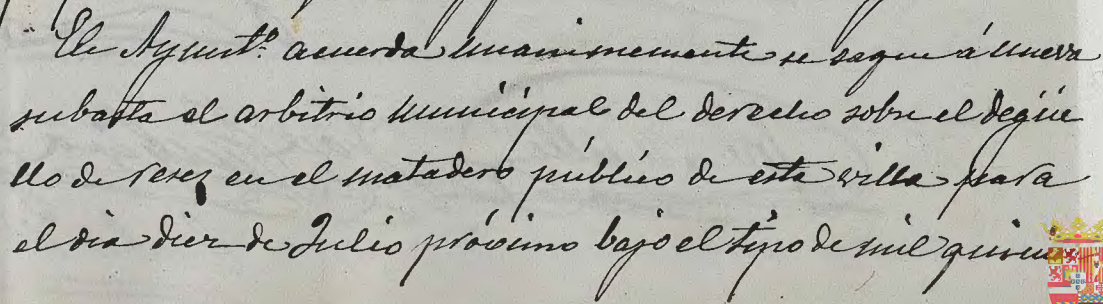 El Ayuntº. acuerda unanimemente se saque á nueva
subasta el arbitrio municipal del derecho sobre el degüe
llo de reses en el matadero público de esta villa para
el dia diez de Julio próximo bajo el tipo de mil